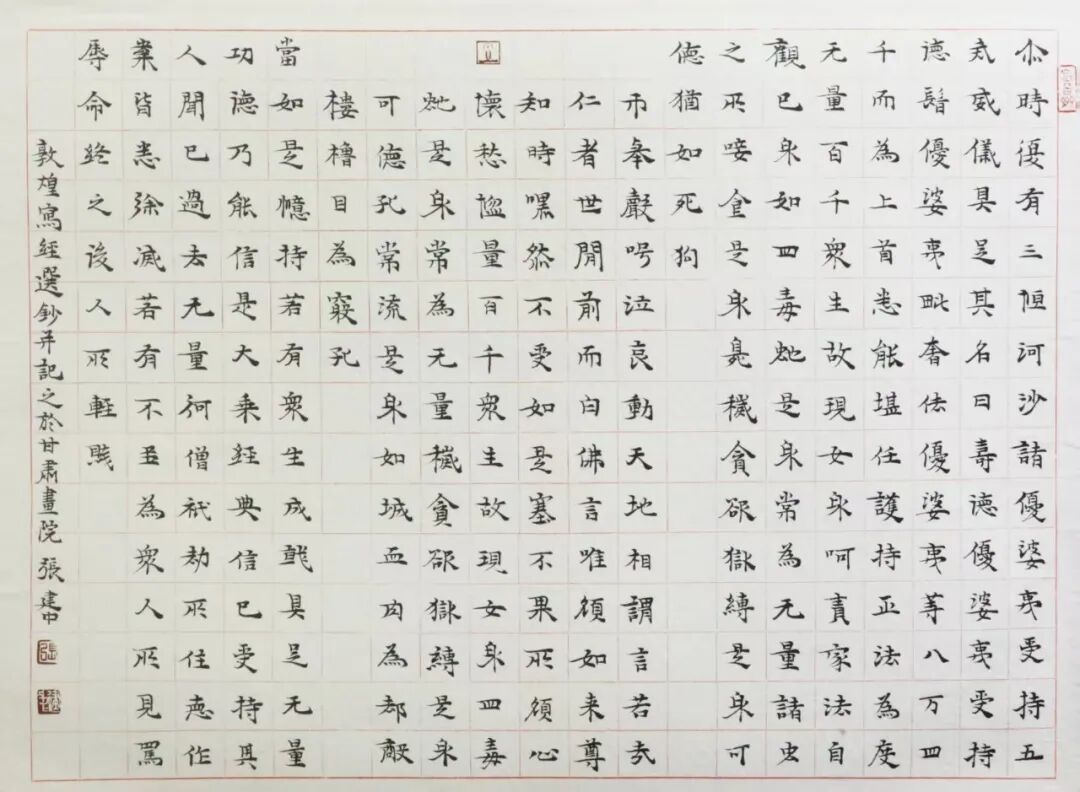 尒時復有三恒河沙諸優婆夷受持五
戒威儀具足其名曰壽德優婆夷受持
德鬘優婆夷毗奢佉優婆夷等八万四
千而為上首悉能堪任護持正法為度
无量百千衆生故現女身呵責家法自
觀已身如四毒虵是身常為无量諸虫
之所唼食是身臭穢貪欲獄縛是身可
德猶如死狗
帀舉聲号泣哀動天地相謂言若哉
仁者世間前而白佛言唯願如来尊
知時嘿然不受如是塞不果所願心
懷愁惱量百千衆生故現女身四毒
虵是身常為无量穢貪欲獄縛是身
可德孔常流是身如城血肉為却敵
樓櫓目為竅孔
當如是憶持若有衆生成就具足无量
功德乃能信是大乘經典信已受持其
人聞已過去无量阿僧祇劫所住恚作
業皆悉除滅若有不至為衆人所見罵
辱命終之後人所輕賤
敦煌寫經選鈔并記之於甘肅畫院 張建中